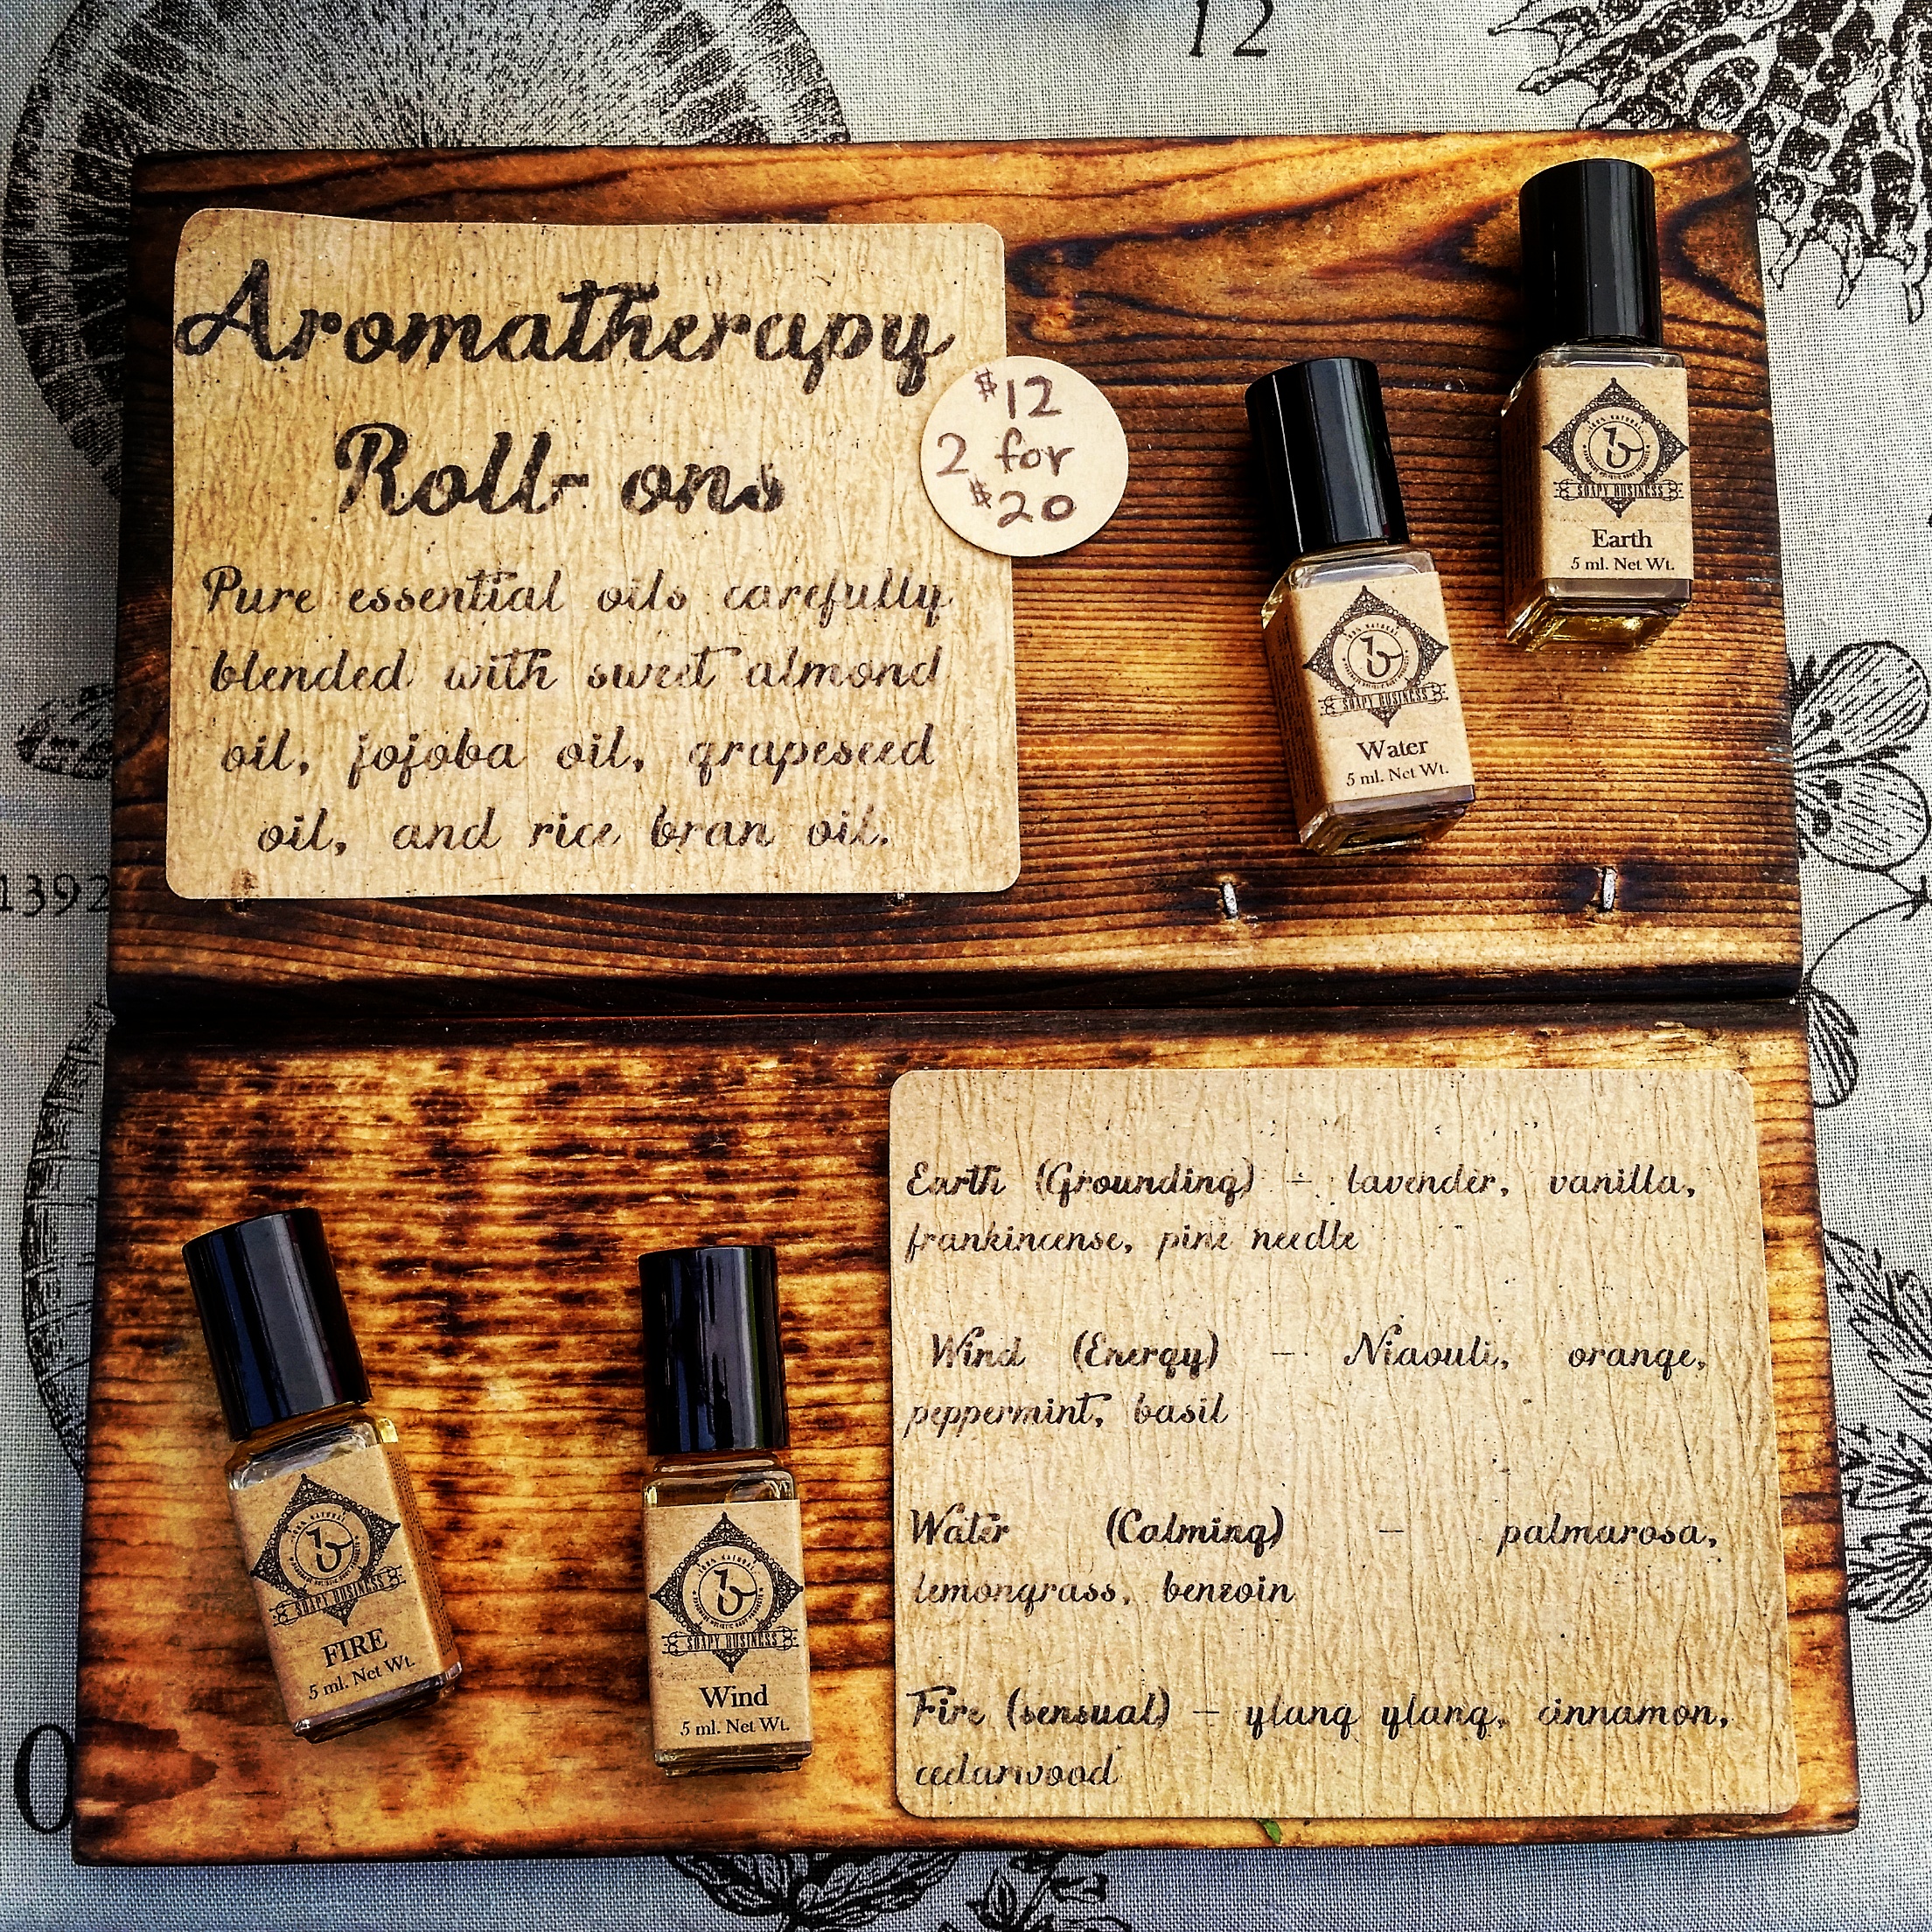 12
Aromatherapy
Roll-ons
$12
2 for
$20
Pure essential oils carefully
blended with sweet almond
oil, jojoba oil, grapeseed
oil, and rice bran oil.
100% NATURAL
SOAPY BUSINESS
Earth
5 ml. Net Wt.
100% NATURAL
SOAPY BUSINESS
Water
5 ml. Net Wt.
1392
Earth (Grounding) - lavender, vanilla,
frankincense, pine needle
Wind (Energy) - Niaouli, orange,
peppermint, basil
Water (Calming) - palmarosa,
lemongrass, benzoin
Fire (sensual) - ylang ylang, cinnamon,
cedarwood
100% NATURAL
SOAPY BUSINESS
FIRE
5 ml. Net Wt.
100% NATURAL
SOAPY BUSINESS
Wind
5 ml. Net Wt.